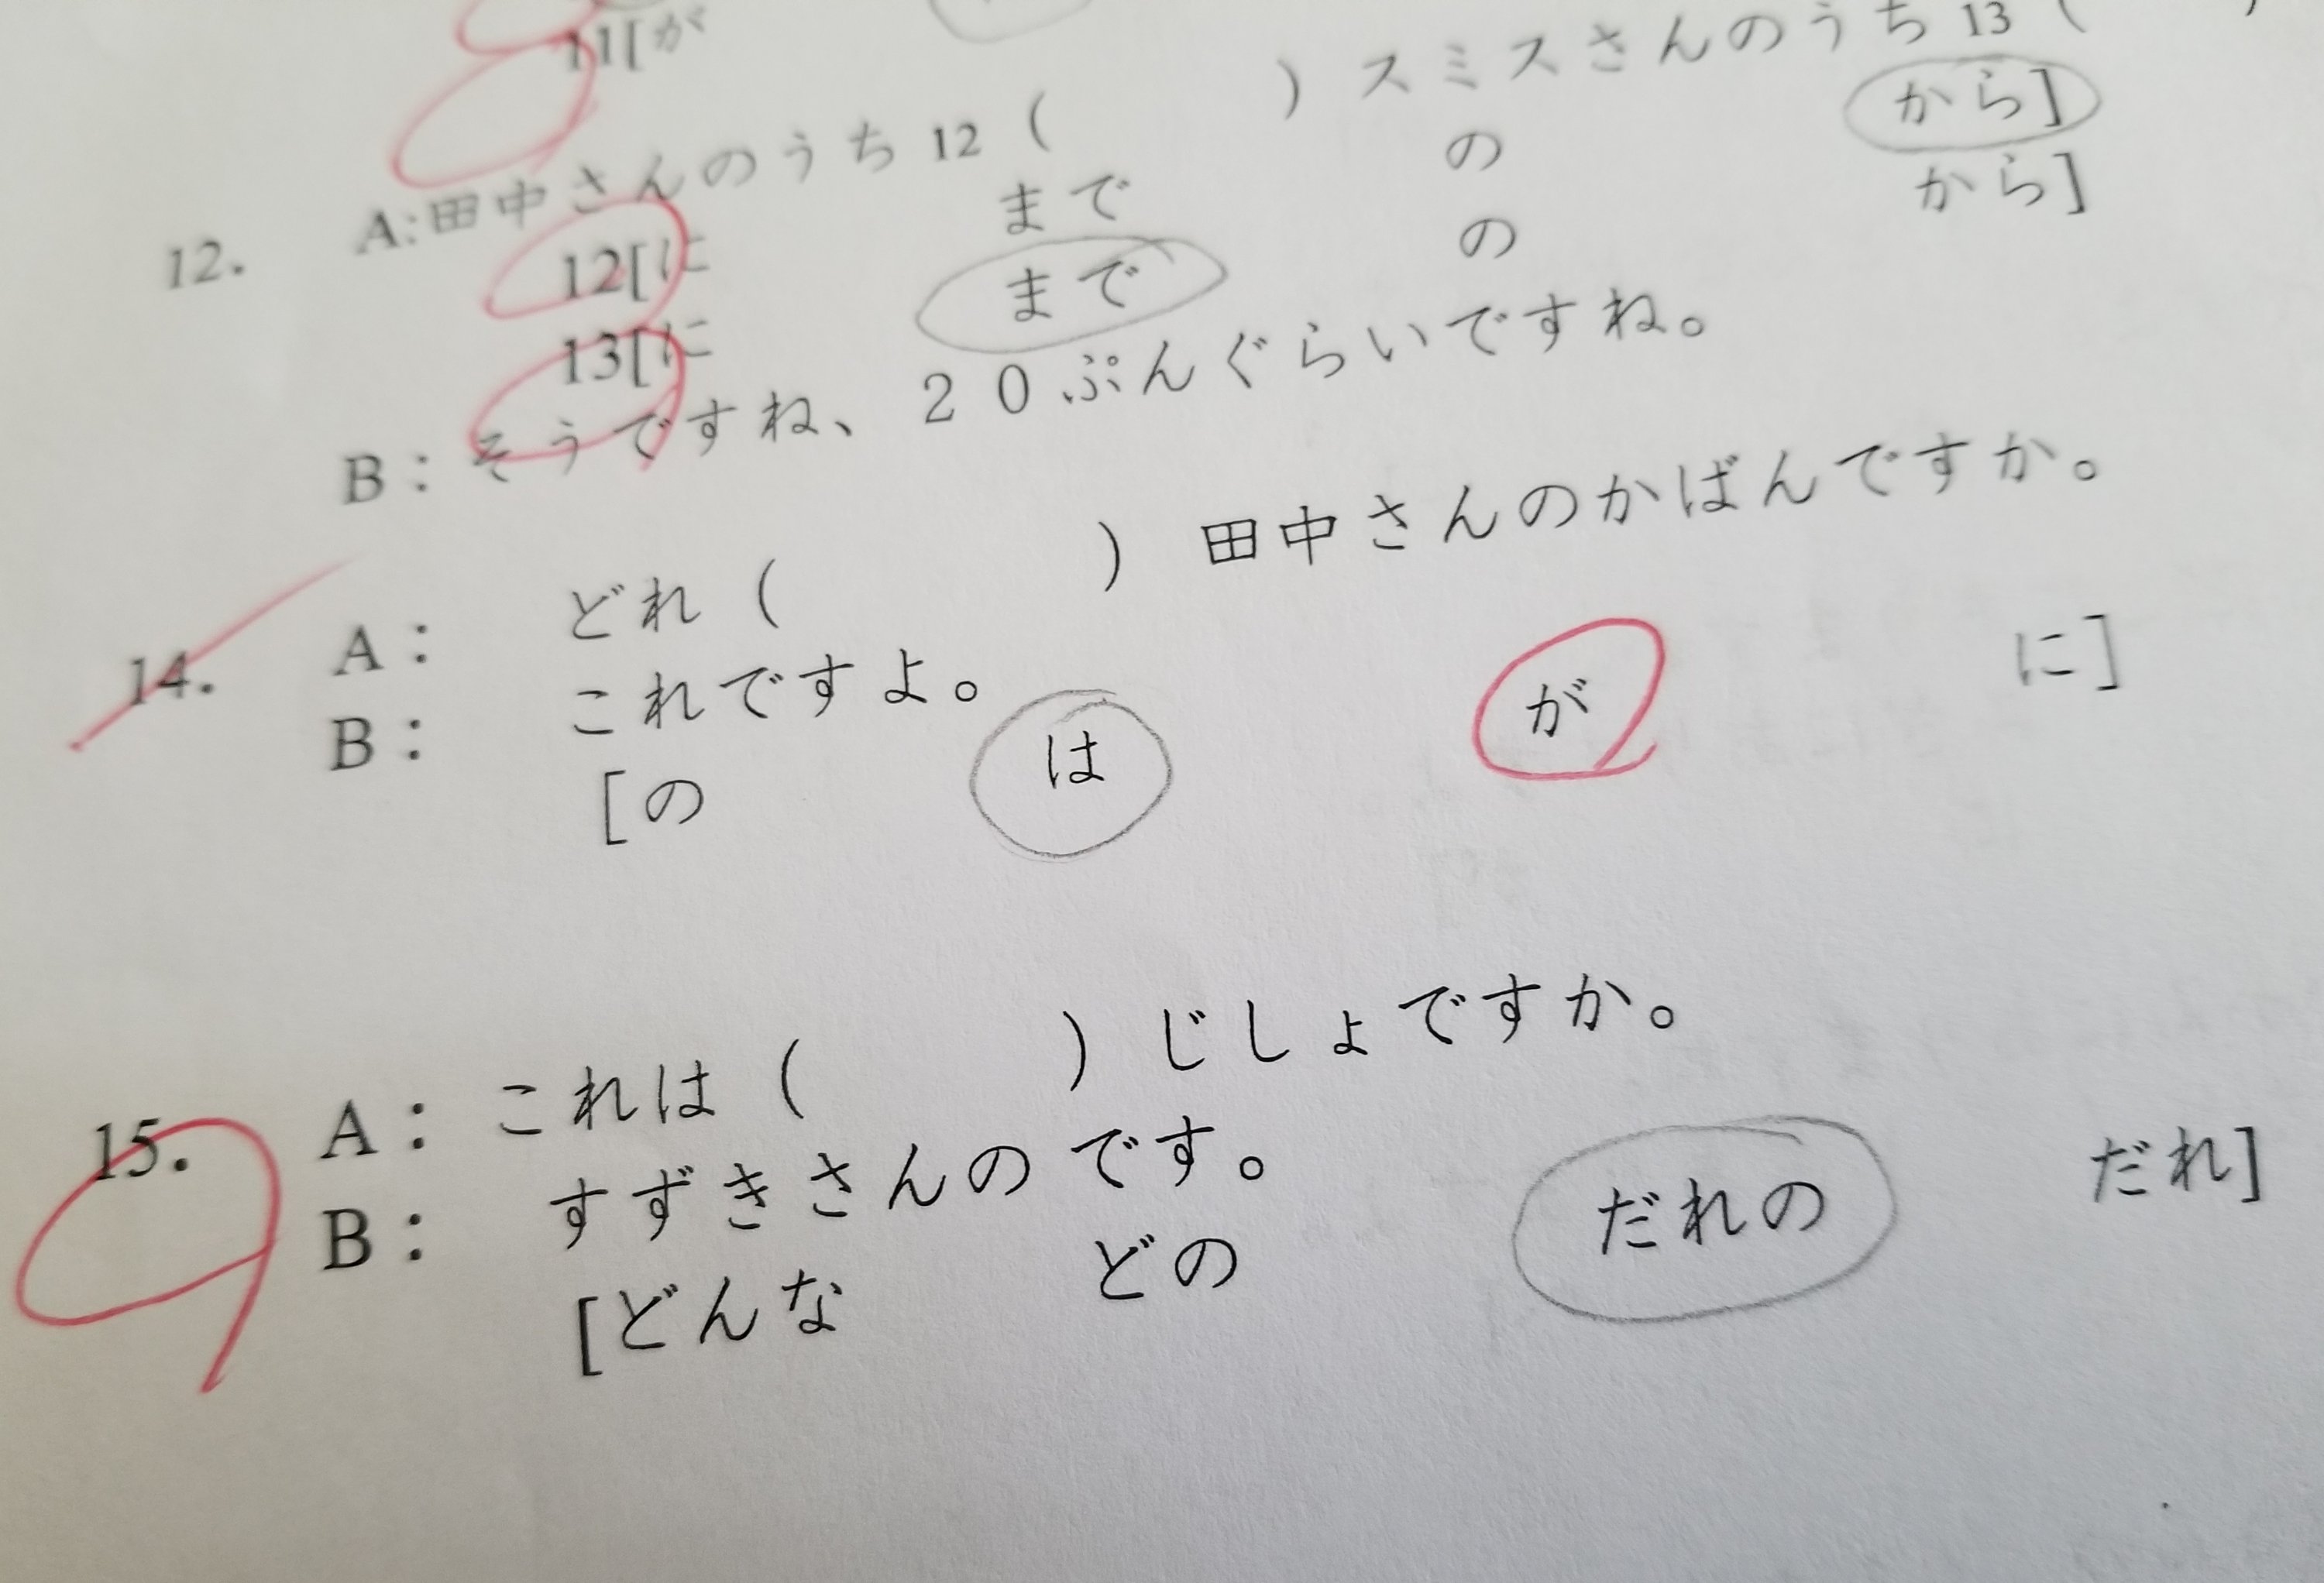 11[が
12. A:田中さんのうち12( )スミスさんのうち13(
12[に まで の から]
13[に まで の から]
B:そうですね、20ぷんぐらいですね。
14. A: どれ( )田中さんのかばんですか。
B: これですよ。
[の は が に]
15. A:これは( )じしょですか。
B: すずきさんのです。
[どんな どの だれの だれ]